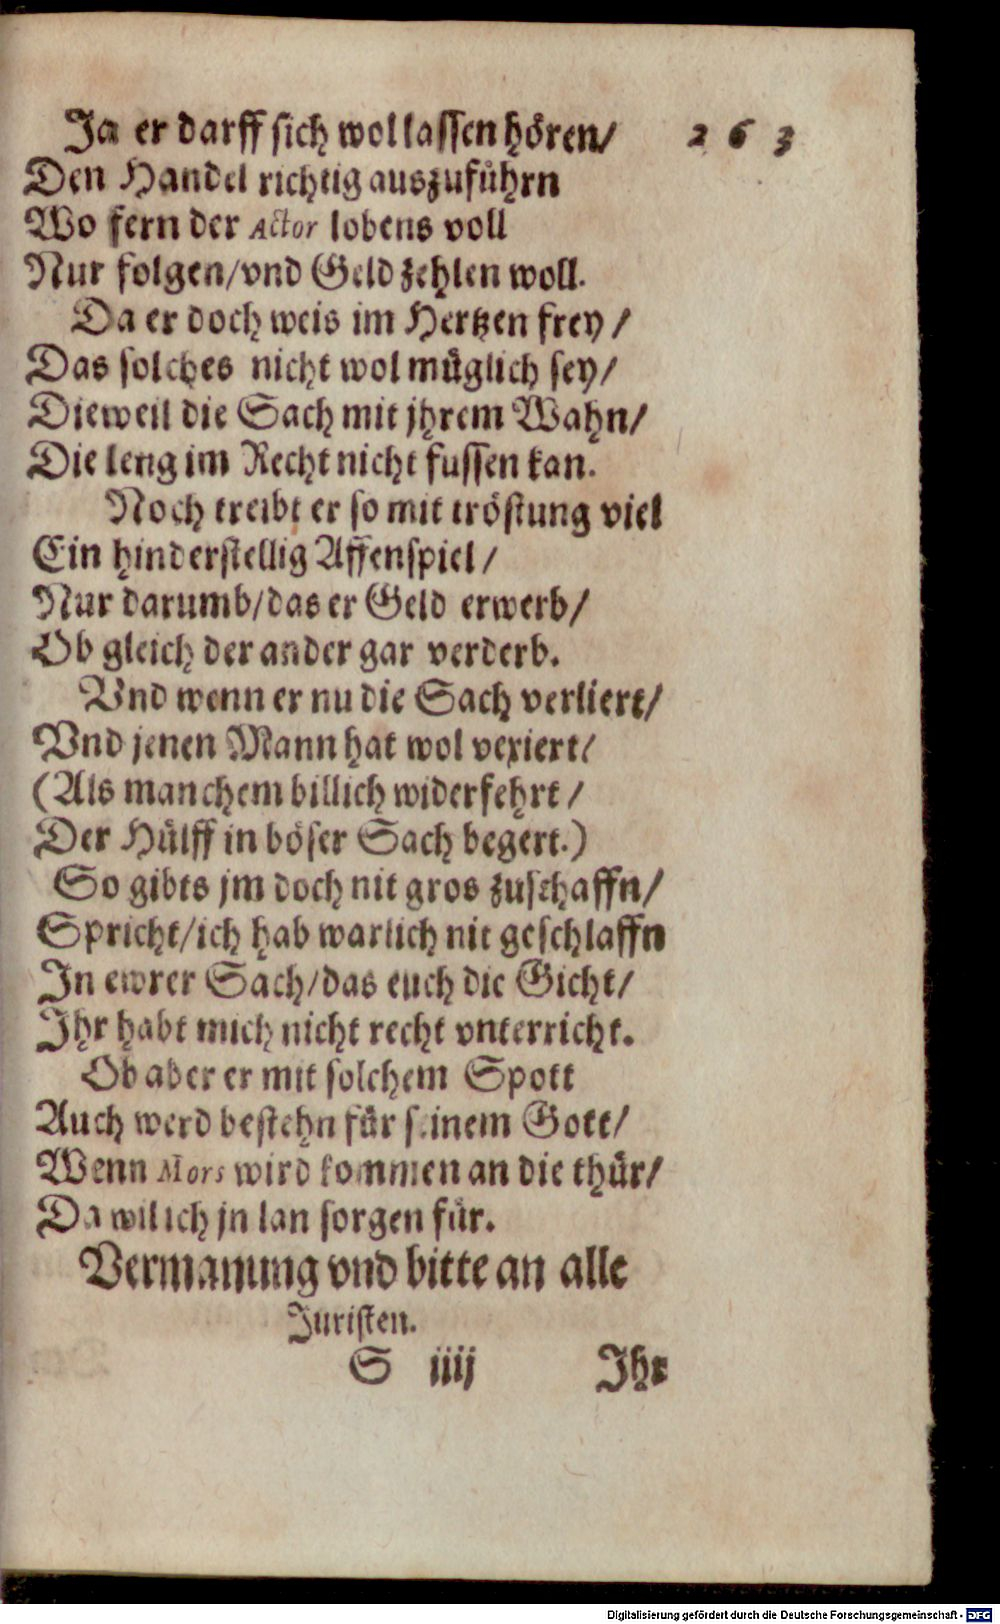 Ja er darff sich wol lassen hören/ 263
Den Handel richtig auszuführn
Wo fern der Actor lobens voll
Nur folgen/vnd Geld zehlen woll.
Da er doch weis im Hertzen frey/
Das solches nicht wol müglich sey/
Dieweil die Sach mit jhrem Wahn/
Die leng im Recht nicht fussen kan.
Noch treibt er so mit tröstung viel
Ein hinderstellig Affenspiel/
Nur darumb/das er Geld erwerb/
Ob gleich der ander gar verderb.
Vnd wenn er nu die Sach verliert/
Vnd jenen Mann hat wol vexiert/
(Als manchem billich widerfehrt/
Der Hülff in böser Sach begert.)
So gibts jm doch nit gros zuschaffn/
Spricht/ich hab warlich nit geschlaffn
In ewrer Sach/das euch die Gicht/
Ihr habt mich nicht recht vnterricht.
Ob aber er mit solchem Spott
Auch werd bestehn für seinem Gott/
Wenn Mors wird kommen an die thür/
Da wil ich jn lan sorgen für.
Vermanung vnd bitte an alle
Juristen.
S iiij Ihr
Digitalisierung gefördert durch die Deutsche Forschungsgemeinschaft - DFG